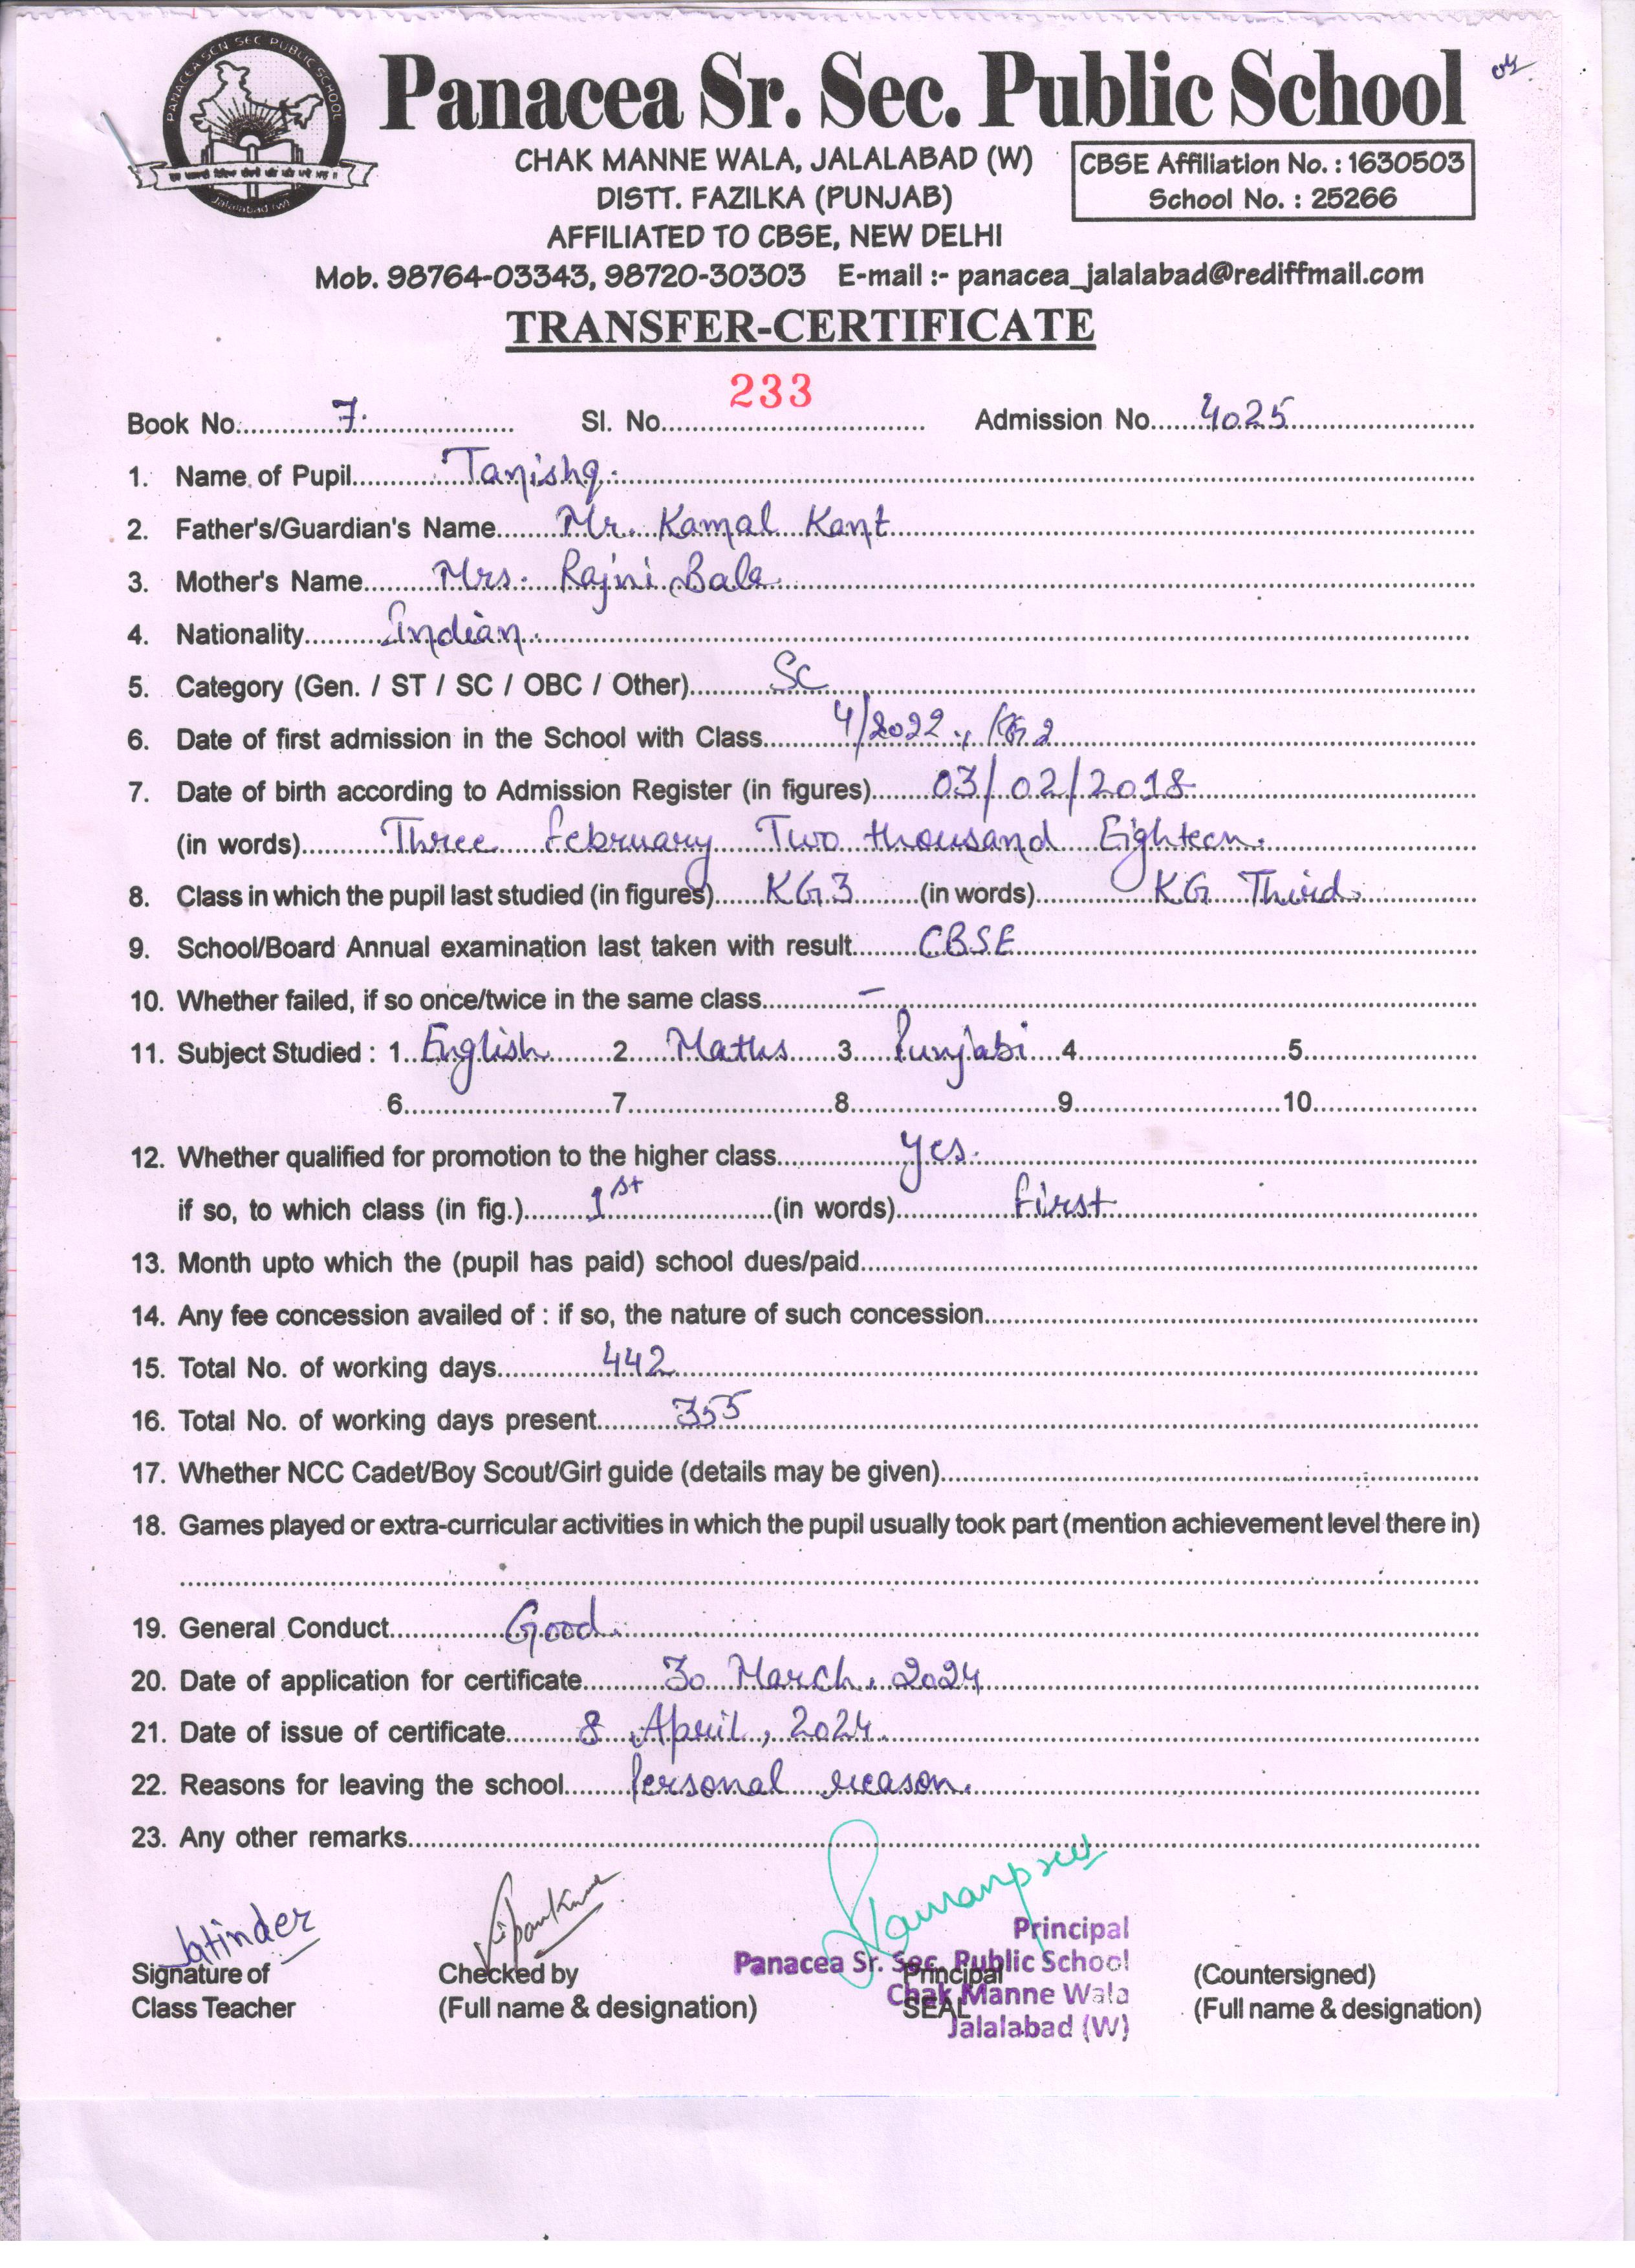 PANACEA SEN SEC PUBLIC SCHOOL
Jalalabad (W)
Panacea Sr. Sec. Public School
CHAK MANNE WALA, JALALABAD (W)
DISTT. FAZILKA (PUNJAB)
CBSE Affiliation No. : 1630503
School No. : 25266
AFFILIATED TO CBSE, NEW DELHI
Mob. 98764-03343, 98720-30303 E-mail :- panacea_jalalabad@rediffmail.com
TRANSFER-CERTIFICATE
Book No. 7. Sl. No. 233 Admission No. 4025
1. Name of Pupil Tanishq.
2. Father's/Guardian's Name Mr. Kamal Kant
3. Mother's Name Mrs. Rajni Bala
4. Nationality Indian.
5. Category (Gen. / ST / SC / OBC / Other) SC
6. Date of first admission in the School with Class 4/2022, KG 2
7. Date of birth according to Admission Register (in figures) 03/02/2018
(in words) Three February Two thousand Eighteen.
8. Class in which the pupil last studied (in figures) KG 3 (in words) KG Third.
9. School/Board Annual examination last taken with result CBSE
10. Whether failed, if so once/twice in the same class –
11. Subject Studied : 1. English 2. Maths 3. Punjabi 4. 5.
6. 7. 8. 9. 10.
12. Whether qualified for promotion to the higher class yes.
if so, to which class (in fig.) 1st (in words) first
13. Month upto which the (pupil has paid) school dues/paid
14. Any fee concession availed of : if so, the nature of such concession
15. Total No. of working days 442
16. Total No. of working days present 355
17. Whether NCC Cadet/Boy Scout/Girl guide (details may be given)
18. Games played or extra-curricular activities in which the pupil usually took part (mention achievement level there in)
19. General Conduct Good.
20. Date of application for certificate 30 March, 2024
21. Date of issue of certificate 8 April, 2024.
22. Reasons for leaving the school Personal reason.
23. Any other remarks
Jatinder
Signature of
Class Teacher
Checked by
(Full name & designation)
Ramanpreet
Principal
Panacea Sr. Sec. Public School
Chak Manne Wala
Jalalabad (W)
Principal
SEAL
(Countersigned)
(Full name & designation)